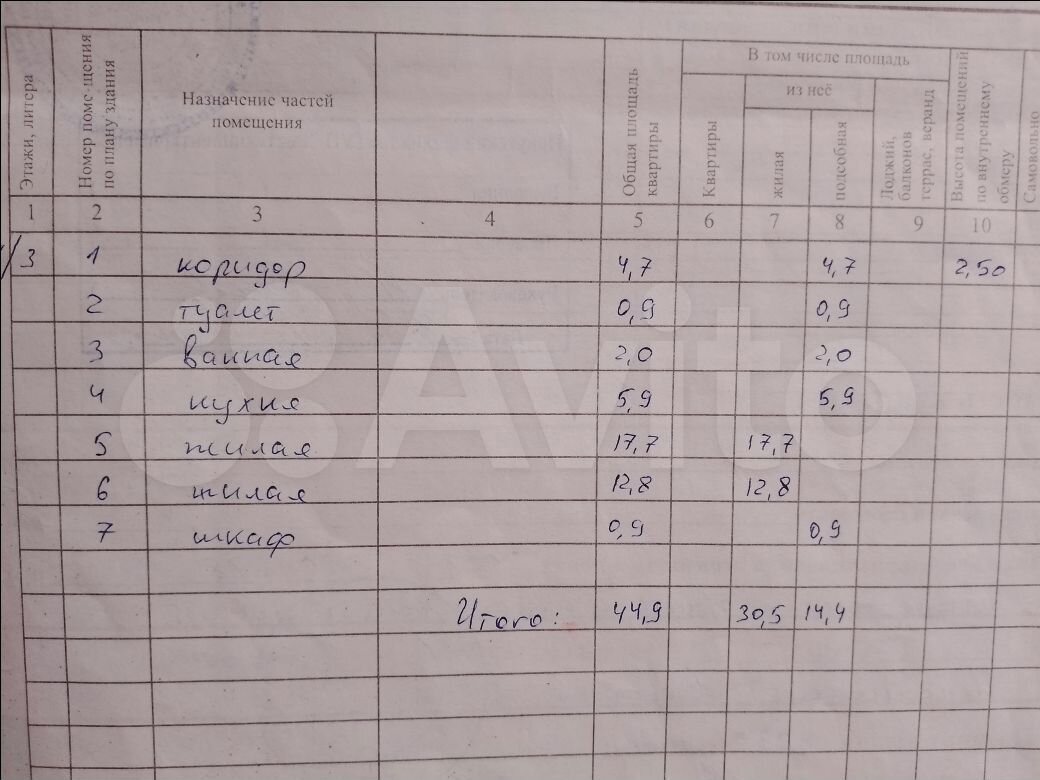 В том числе площадь
из неё
Этажи, литера
Номер помещения по плану здания
Назначение частей помещения
Общая площадь квартиры
Квартиры
жилая
подсобная
Лоджий, балконов террас, веранд
Высота помещений по внутреннему обмеру
Самовольно
1 2 3 4 5 6 7 8 9 10
3 1 коридор 4,7 4,7 2,50
2 туалет 0,9 0,9
3 ванная 2,0 2,0
4 кухня 5,9 5,9
5 жилая 17,7 17,7
6 жилая 12,8 12,8
7 шкаф 0,9 0,9
Итого: 44,9 30,5 14,4
Avito